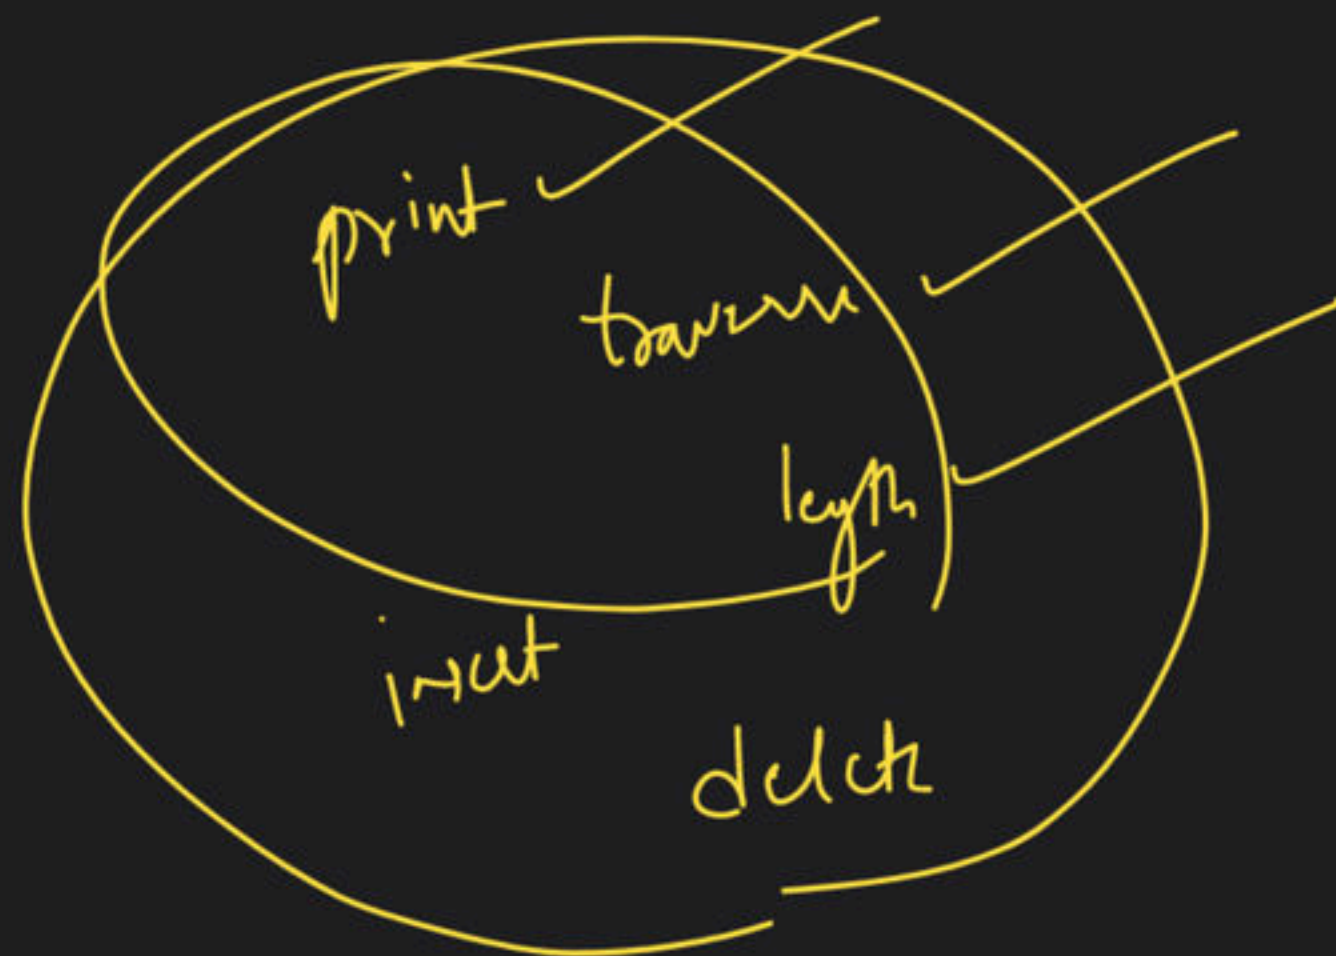 print
traverse
length
insert
delete